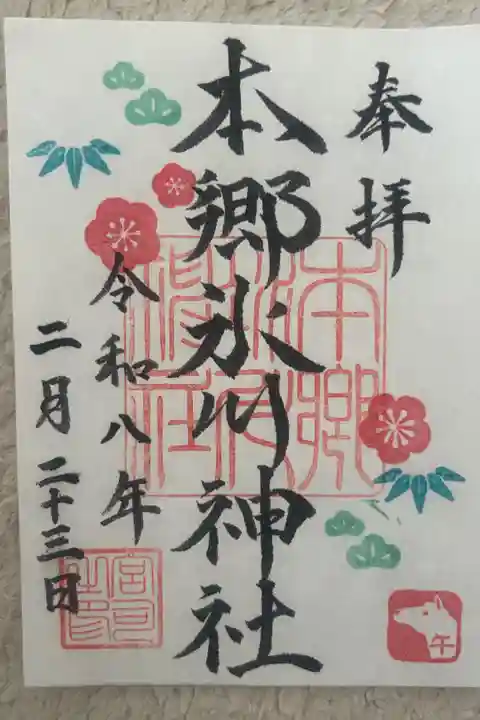 奉拝
本郷氷川神社
令和八年
二月二十三日
本郷氷川神社
午